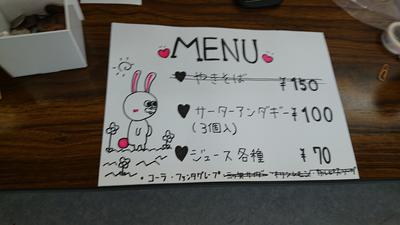 MENU
やきそば ¥150
サーターアンダギー ¥100
(3個入)
ジュース各種 ¥70
・コーラ・ファンタグレープ